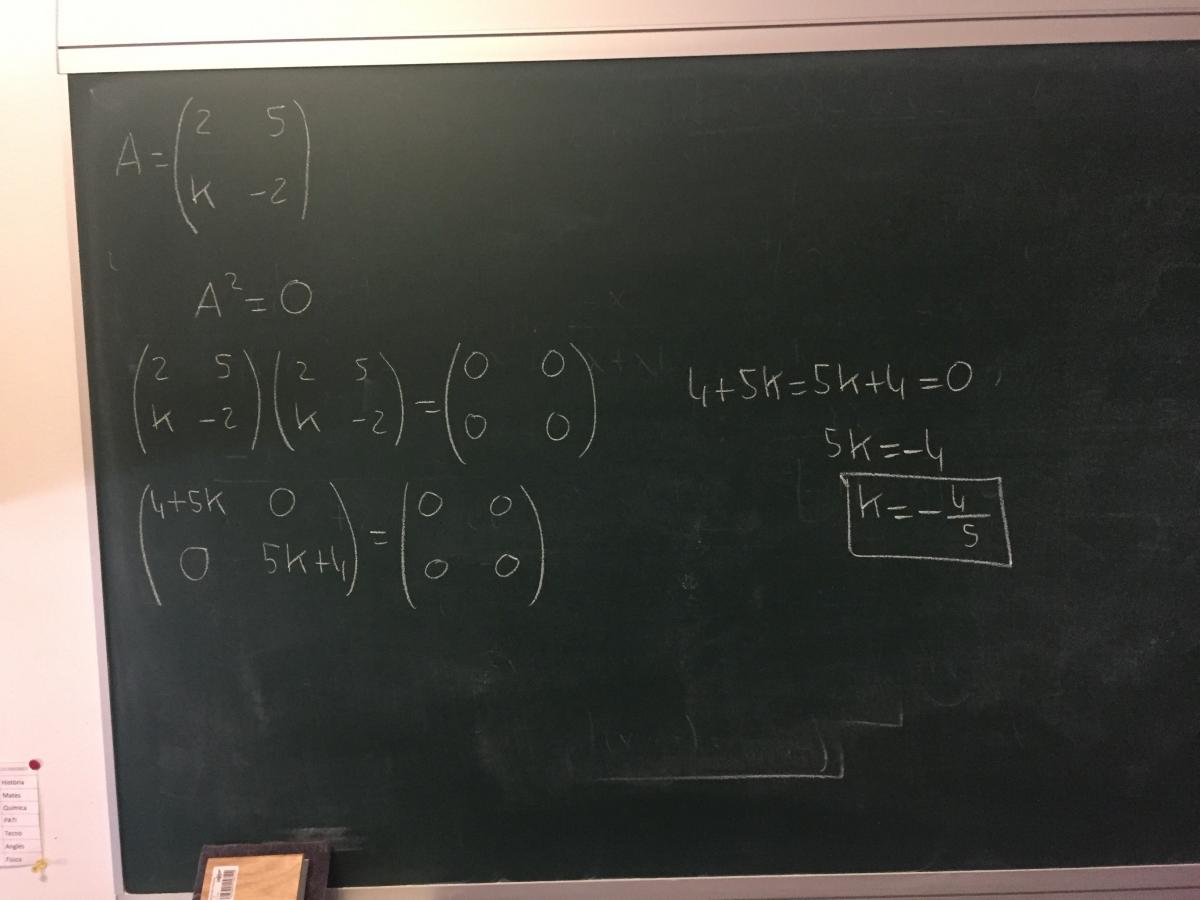 A = (2 5
k -2)
A² = 0
(2 5
k -2) (2 5
k -2) = (0 0
0 0)
(4+5k 0
0 5k+4) = (0 0
0 0)
4+5k=5k+4=0
5k=-4
k=-4/5
Història
Mates
Química
PATI
Tecno
Anglès
Física